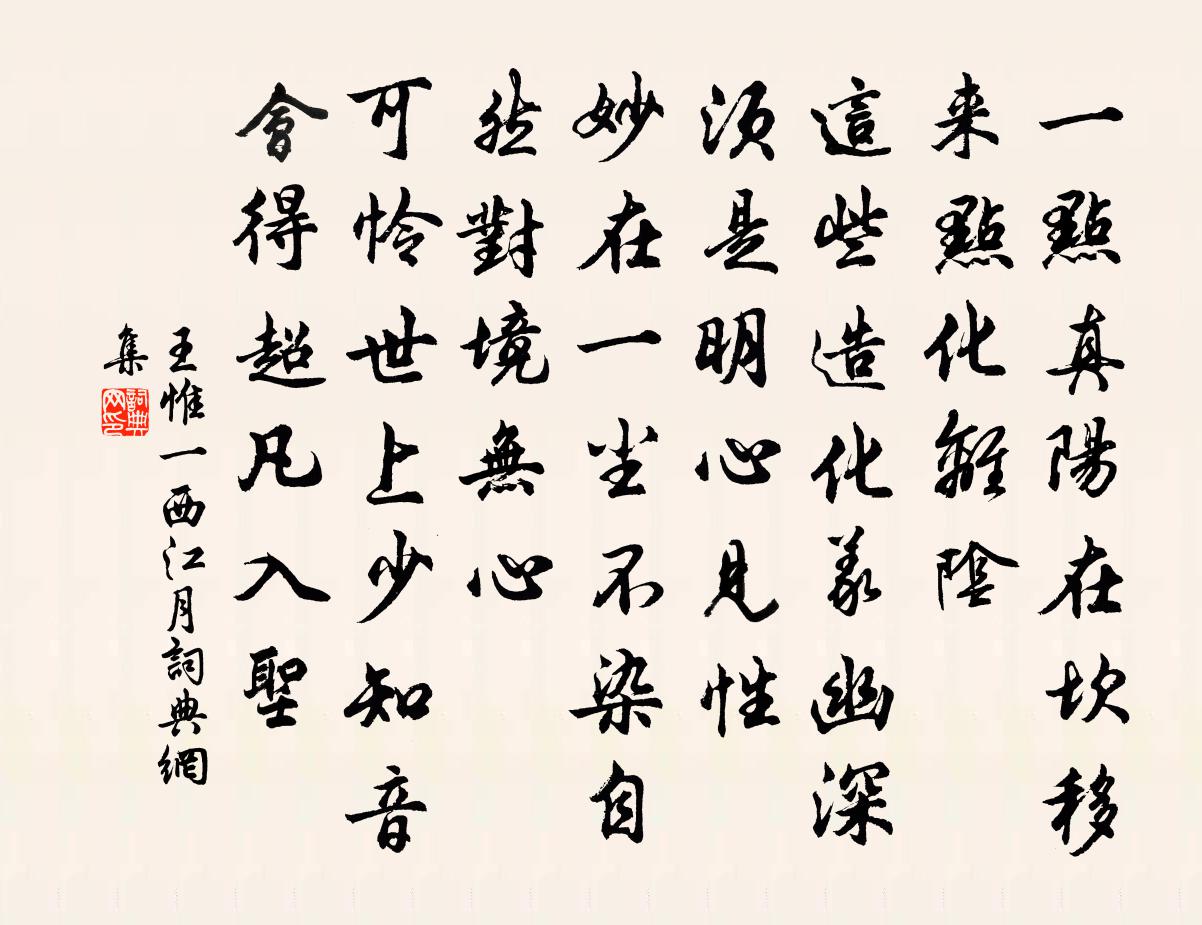 一點真陽在坎移
来點化離陰
這些造化義幽深
須是明心見性
妙在一尘不染自
然對境無心
可怜世上少知音
會得超凡入聖
王惟一西江月詞典網
集
詞典网印